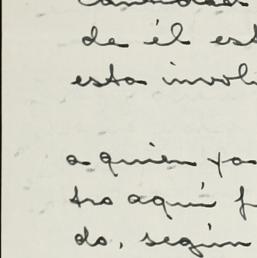 de él est
esta invol
a quien ya
tro aquí f
do, según